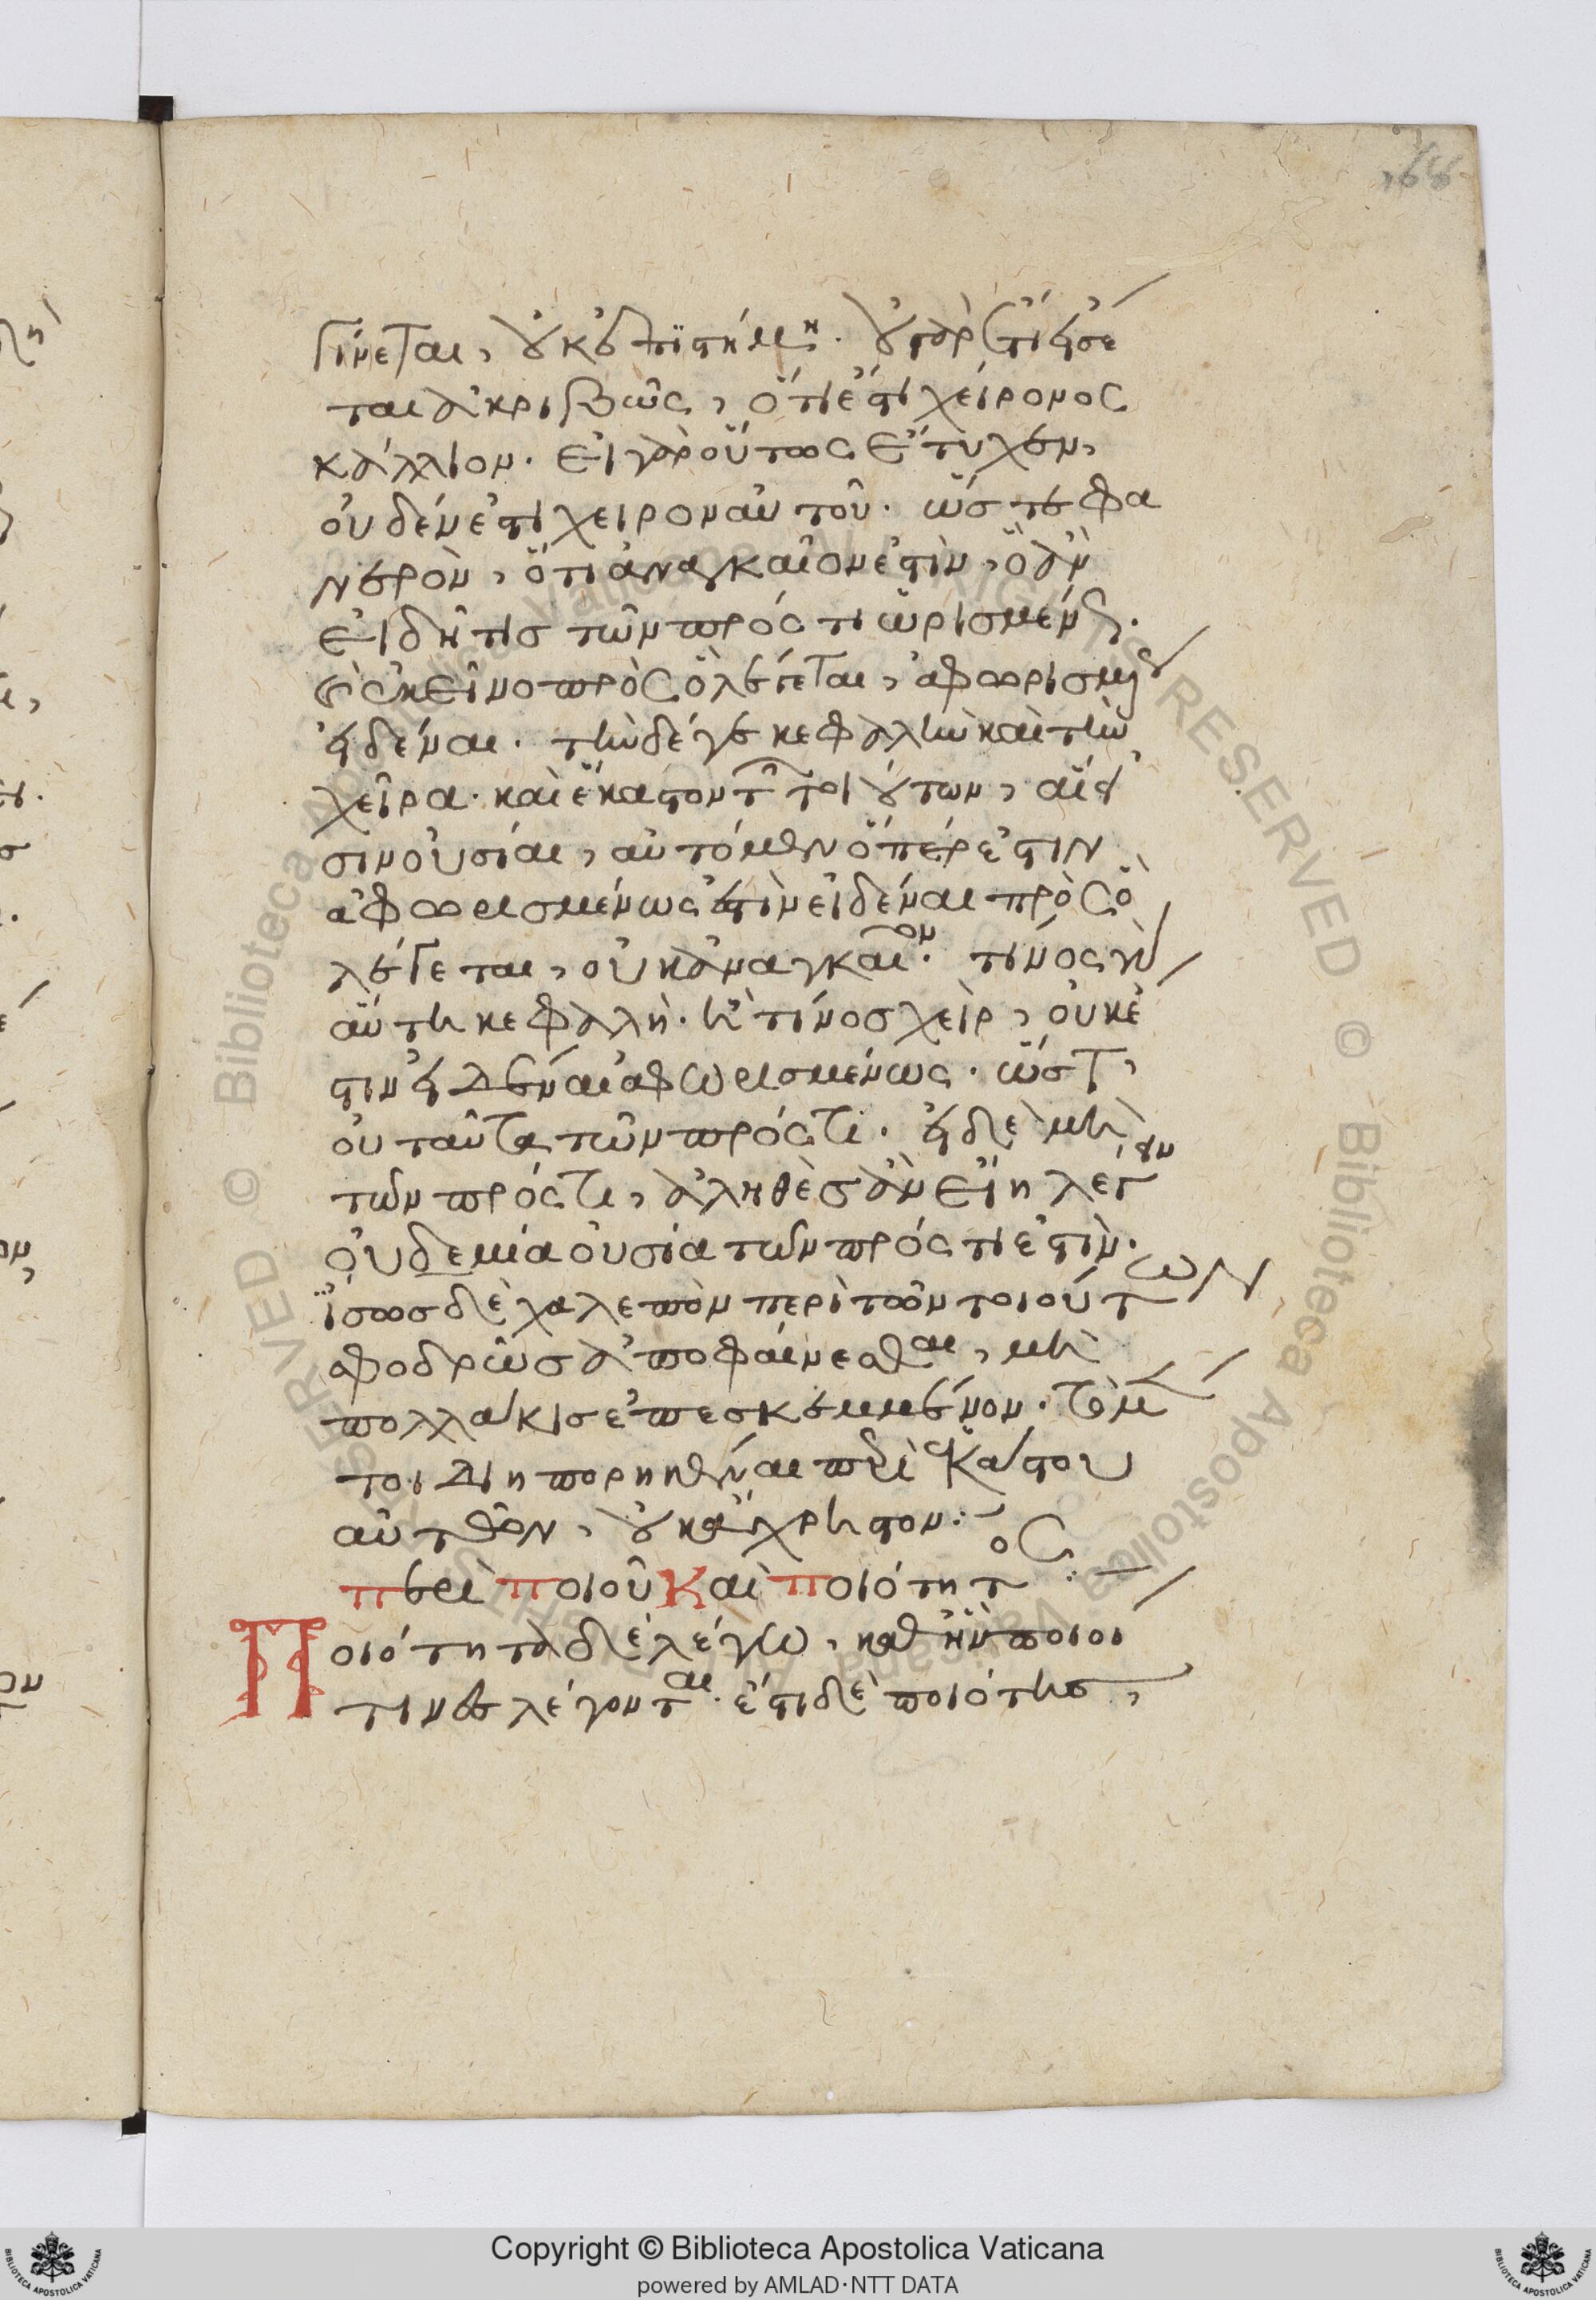 γίνεται, οὐκ ἐπιστήμη. οὐ γὰρ ἔτι εἴσε
ται ἀκριβῶς, ὅτι ἐστὶ χείρονος
κάλλιον. εἰ γὰρ οὕτως ἔτυχεν,
οὐδέν ἐστι χεῖρον αὐτοῦ. ὥστε φα
νερὸν, ὅτι ἀναγκαῖον ἐστὶν, ὃ ἂν
εἰδῆ τις τῶν πρός τι ὡρισμένως.
κἀκεῖνο πρὸς ὃ λέγεται, ἀφωρισμένως
εἰδέναι. τὴν δέ γε κεφαλὴν καὶ τὴν
χεῖρα. καὶ ἕκαστον τῶν τοιούτων, αἵ εἰ
σιν οὐσίαι, αὐτὸ μὲν ὅπερ ἐστιν
ἀφωρισμένως ἔστιν εἰδέναι πρὸς ὃ
λέγεται, οὐκ ἀναγκαῖον. τίνος γὰρ
αὕτη κεφαλὴ. ἢ τίνος χεὶρ, οὐκ ἔ
στιν εἰδέναι ἀφωρισμένως. ὥστε,
οὐ ταῦτα τῶν πρός τι. εἰ δὲ μὴ
τῶν πρός τι, ἀληθὲς ἂν εἴη λέγειν
οὐδεμία οὐσία τῶν πρός τι ἐστὶν.
ἴσως δὲ χαλεπὸν περὶ τῶν τοιούτων
σφοδρῶς ἀποφαίνεσθαι, μὴ
πολλάκις ἐπεσκεμμένον. τὸ μέν
τοι διηπορηκέναι περὶ ἑκάστου
αὐτῶν, οὐκ ἄχρηστον:
περὶ ποιοῦ καὶ ποιότητος:
Ποιότητα δὲ λέγω, καθ' ἣν ποιοί
τινες λέγονται. ἔστι δὲ ποιότης,
Copyright © Biblioteca Apostolica Vaticana
powered by AMLAD·NTT DATA